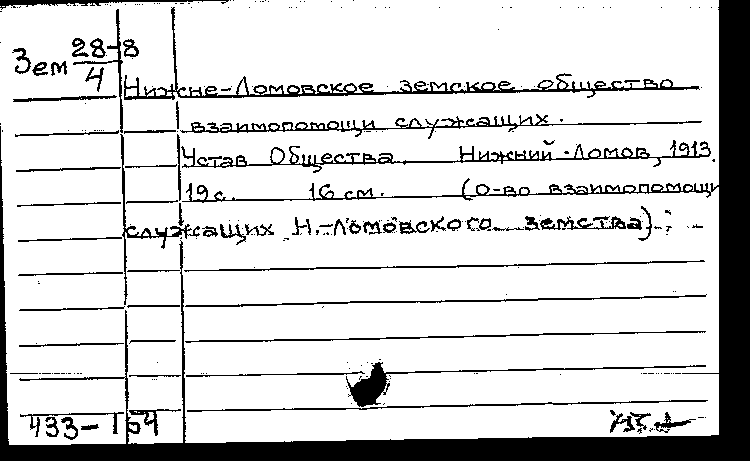 Зем 28-8
4
Нижне-Ломовское земское общество
взаимопомощи служащих.
Устав Общества. Нижний-Ломов, 1913.
19 с. 16 см. (О-во взаимопомощи
служащих Н.-Ломовского земства).
433-164